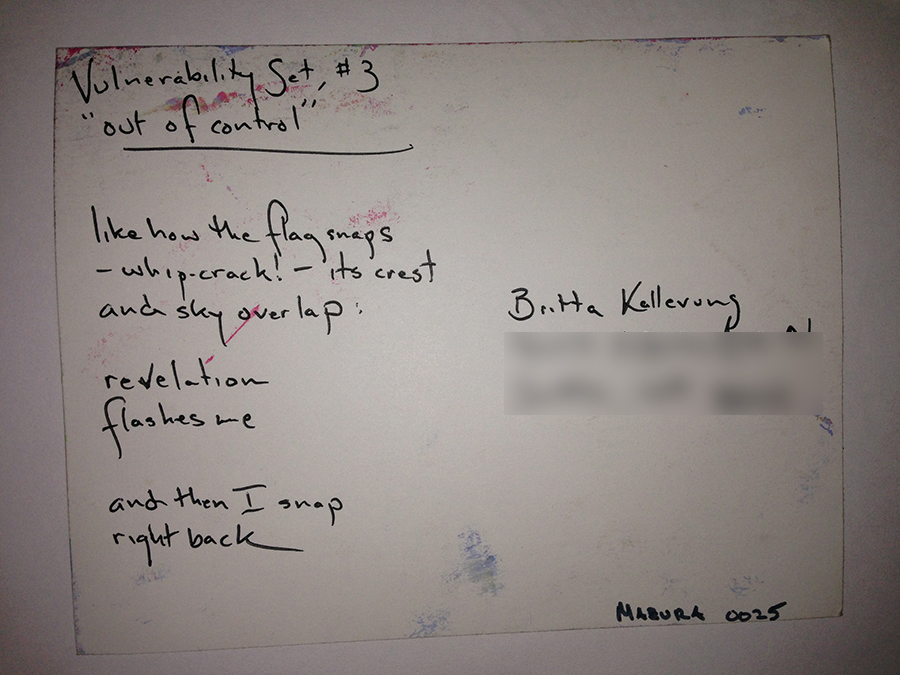 Vulnerability Set, #3
"out of control"
like how the flag snaps
- whip-crack! - its crest
and sky overlap:
revelation
flashes me
and then I snap
right back
Britta Kallevung
MABURA 0025